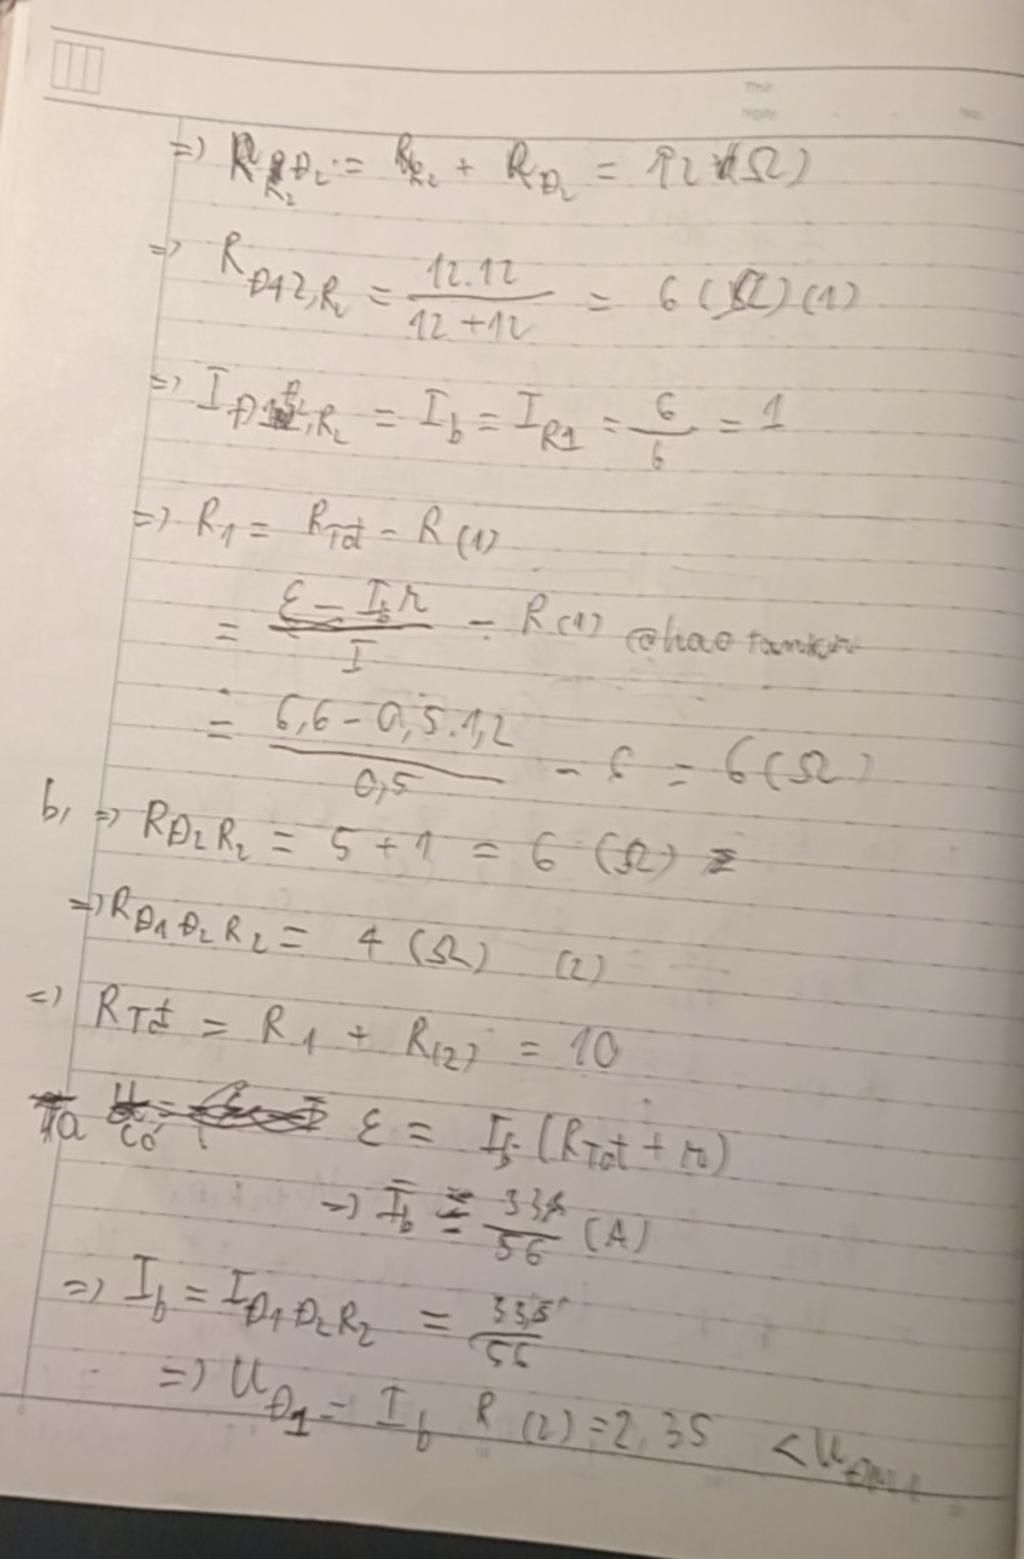 Thứ
Ngày
No.
=> R_{R₂Đ₂} = R_{R₂} + R_{Đ₂} = 12 (Ω)
=> R_{Đ12,R₂} = \frac{12.12}{12+12} = 6 (Ω) (1)
=> I_{Đ12,R₂} = I_b = I_{R1} = \frac{6}{6} = 1
=> R₁ = R_{Tđ} - R_{(1)}
= \frac{ε - I_b r}{I} - R_{(1)}
= \frac{6,6 - 0,5.1,2}{0,5} - 6 = 6 (Ω)
b, => R_{Đ₂R₂} = 5 + 1 = 6 (Ω)
=> R_{Đ₁Đ₂R₂} = 4 (Ω) (2)
=> R_{Tđ} = R₁ + R_{(2)} = 10
Ta có ε = I_b (R_{Tđ} + r)
=> I_b = \frac{33}{56} (A)
=> I_b = I_{Đ₁Đ₂R₂} = \frac{33}{56}
=> U_{Đ1} = I_b R_{(2)} = 2,35 < U_{ĐM1}